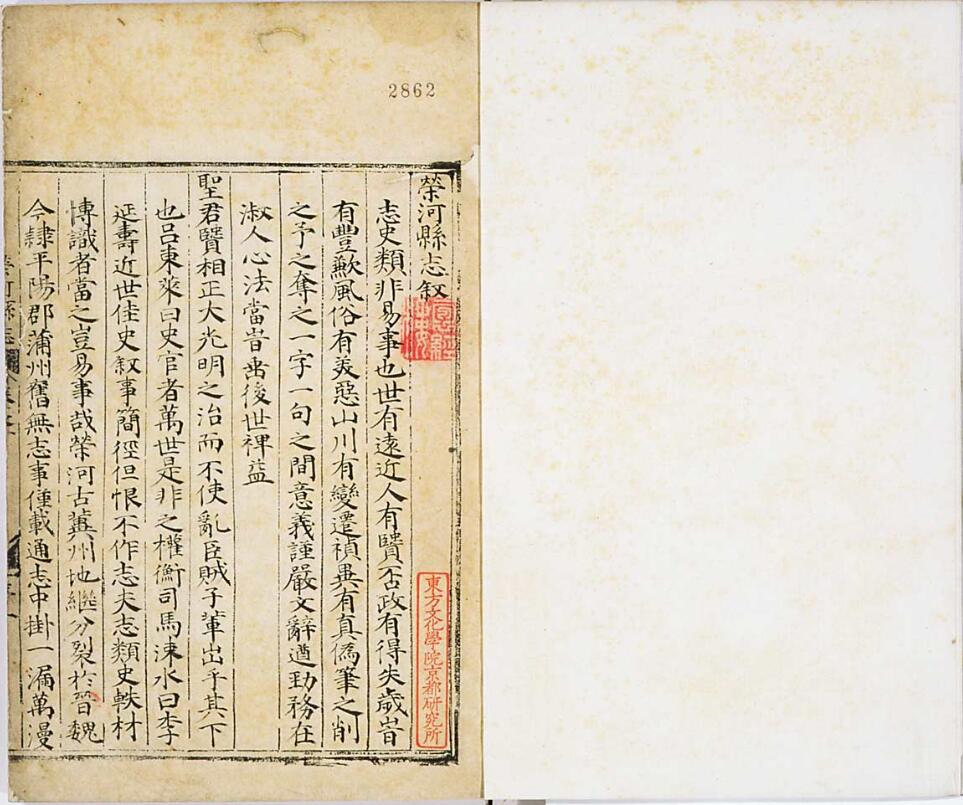 2862
榮河縣志叙
志史類非易事也世有遠近人有賢否政有得失歲旹
有豐歉風俗有美惡山川有變遷禎異有真僞筆之削
之予之奪之一字一句之間意義謹嚴文辭遒劲務在
淑人心法當旹垂後世裨益
聖君賢相正大光明之治而不使亂臣賊子輩出乎其下
也吕東萊曰史官者萬世是非之權衡司馬涑水曰李
延壽近世佳史叙事簡徑但恨不作志夫志類史軼材
博識者當之豈易事哉榮河古冀州地繼分裂於晉魏
今隸平陽郡蒲州舊無志事僅載通志中掛一漏萬漫
東方文化學院京都研究所